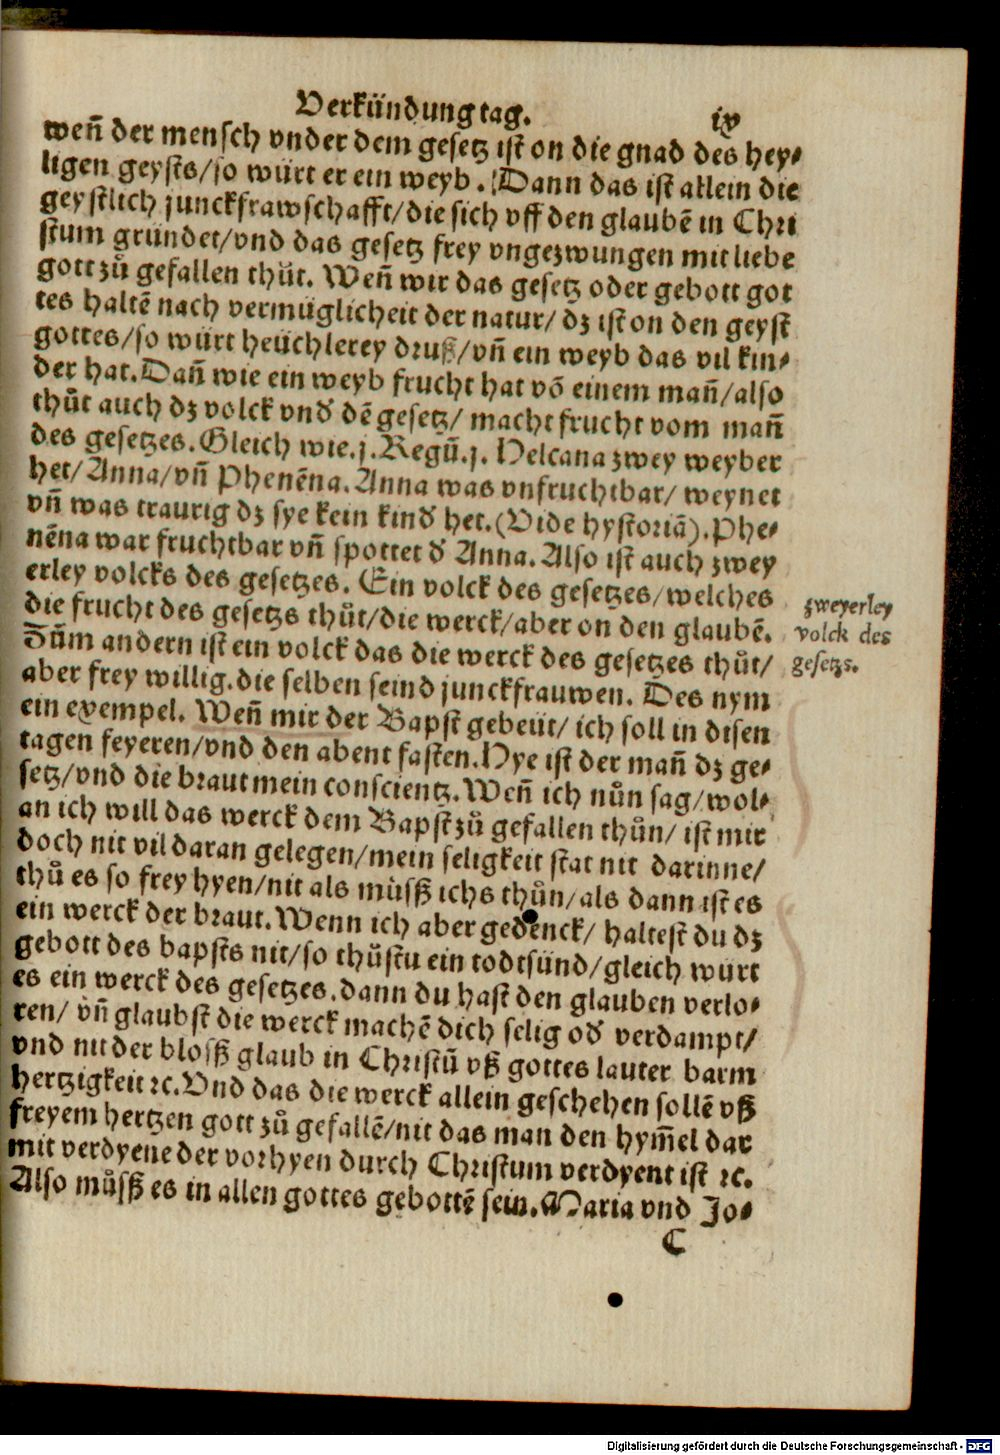 Verkündung tag. ix
weñ der mensch vnder dem gesetz ist on die gnad des hey⸗
ligen geysts/so würt er ein weyb. Dann das ist allein die
geystlich junckfrawschafft/die sich vff den glaubẽ in Chri
stum gründet/vnd das gesetz frey vngezwungen mit liebe
gott zů gefallen thůt. Weñ wir das gesetz oder gebott got
tes haltẽ nach vermüglicheit der natur/ dz ist on den geyst
gottes/so würt heüchlerey druß/vñ ein weyb das vil kin⸗
der hat. Dañ wie ein weyb frucht hat võ einem mañ/also
thůt auch dz volck vnd̕ dẽ gesetz/ macht frucht vom mañ
des gesetzes. Gleich wie.j. Regũ.j. Helcana zwey weyber
het/ Anna/vñ Phenẽna. Anna was vnfruchtbar/ weynet
vñ was traurig dz sye kein kind̕ het. (Vide hystoriã). Phe⸗
nẽna war fruchtbar vñ spottet d̕ Anna. Also ist auch zwey
erley volcks des gesetzes. Ein volck des gesetzes/welches
die frucht des gesetzs thůt/die werck/aber on den glaubẽ.
Zům andern ist ein volck das die werck des gesetzes thůt/
aber frey willig. die selben seind junckfrauwen. Des nym
ein exempel. Weñ mir der Bapst gebeüt/ ich soll in disen
tagen feyeren/vnd den abent fasten. Hye ist der mañ dz ge⸗
setz/vnd die braut mein conscientz. Weñ ich nůn sag/wol⸗
an ich will das werck dem Bapst zů gefallen thůn/ ist mir
doch nit vil daran gelegen/mein seligkeit stat nit darinne/
thů es so frey hyen/nit als můsß ichs thůn/als dann ist es
ein werck der braut. Wenn ich aber gedenck/ haltest du dz
gebott des bapsts nit/so thůstu ein todtsünd/gleich würt
es ein werck des gesetzes. dann du hast den glauben verlo⸗
ren/ vñ glaubst die werck machẽ dich selig od̕ verdampt/
vnd nit der blosß glaub in Christũ vß gottes lauter barm
hertzigkeit ꝛc. Vnd das die werck allein geschehen sollẽ vß
freyem hertzen gott zů gefallẽ/nit das man den hym̃el dar
mit verdyene der vorhyen durch Christum verdyent ist ꝛc.
Also můsß es in allen gottes gebottẽ sein. Maria vnd Jo⸗
C
zweyerley
volck des
gesetzs.
Digitalisierung gefördert durch die Deutsche Forschungsgemeinschaft - DFG